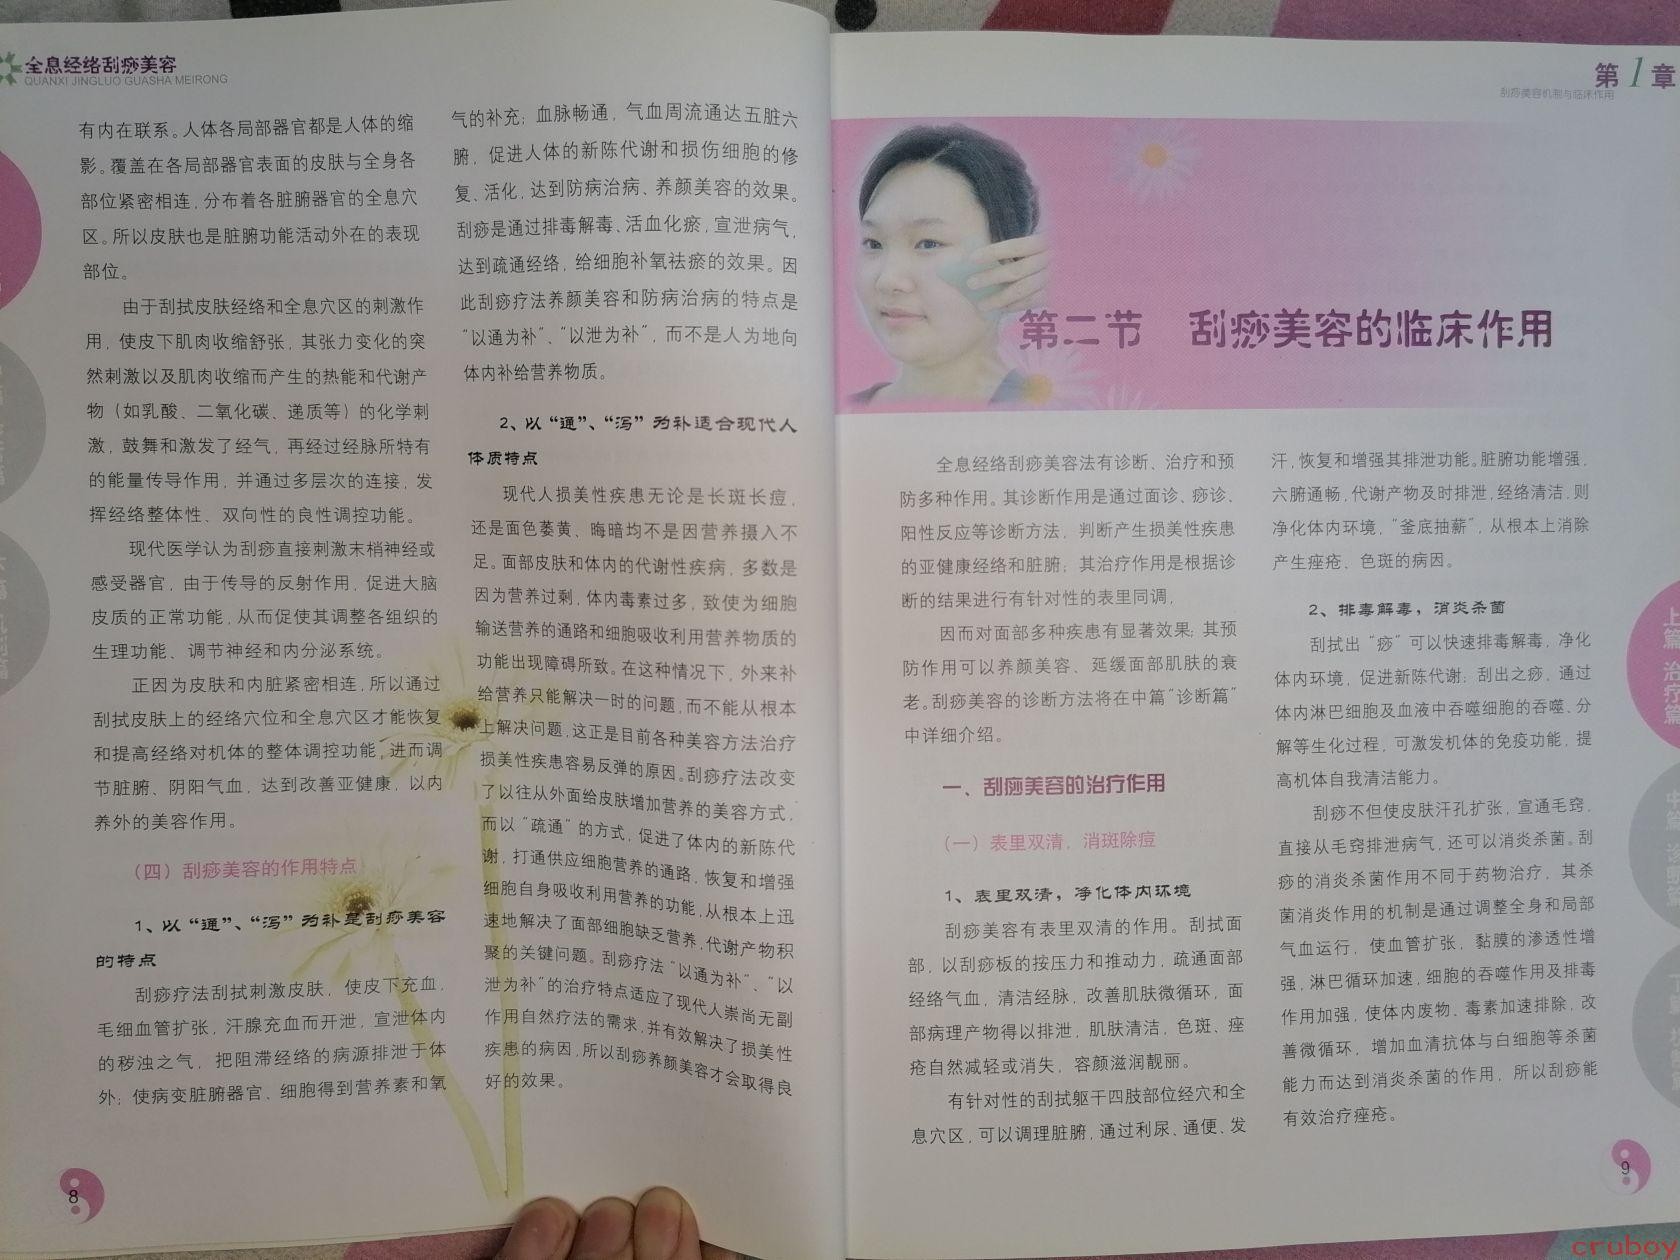 全息经络刮痧美容
QUANXI JINGLUO GUASHA MEIRONG
有内在联系。人体各局部器官都是人体的缩
影。覆盖在各局部器官表面的皮肤与全身各
部位紧密相连，分布着各脏腑器官的全息穴
区。所以皮肤也是脏腑功能活动外在的表现
部位。
由于刮拭皮肤经络和全息穴区的刺激作
用，使皮下肌肉收缩舒张，其张力变化的突
然刺激以及肌肉收缩而产生的热能和代谢产
物（如乳酸、二氧化碳、递质等）的化学刺
激，鼓舞和激发了经气，再经过经脉所特有
的能量传导作用，并通过多层次的连接，发
挥经络整体性、双向性的良性调控功能。
现代医学认为刮痧直接刺激末梢神经或
感受器官，由于传导的反射作用，促进大脑
皮质的正常功能，从而促使其调整各组织的
生理功能、调节神经和内分泌系统。
正因为皮肤和内脏紧密相连，所以通过
刮拭皮肤上的经络穴位和全息穴区才能恢复
和提高经络对机体的整体调控功能，进而调
节脏腑、阴阳气血，达到改善亚健康，以内
养外的美容作用。
（四）刮痧美容的作用特点
1、以“通”、“泻”为补是刮痧美容
的特点
刮痧疗法刮拭刺激皮肤，使皮下充血，
毛细血管扩张，汗腺充血而开泄，宣泄体内
的秽浊之气，把阻滞经络的病源排泄于体
外；使病变脏腑器官、细胞得到营养素和氧
8
气的补充；血脉畅通，气血周流通达五脏六
腑，促进人体的新陈代谢和损伤细胞的修
复、活化，达到防病治病、养颜美容的效果。
刮痧是通过排毒解毒、活血化瘀，宣泄病气，
达到疏通经络，给细胞补氧祛瘀的效果。因
此刮痧疗法养颜美容和防病治病的特点是
“以通为补”、“以泄为补”，而不是人为地向
体内补给营养物质。
2、以“通”、“泻”为补适合现代人
体质特点
现代人损美性疾患无论是长斑长痘，
还是面色萎黄、晦暗均不是因营养摄入不
足。面部皮肤和体内的代谢性疾病，多数是
因为营养过剩，体内毒素过多，致使为细胞
输送营养的通路和细胞吸收利用营养物质的
功能出现障碍所致。在这种情况下，外来补
给营养只能解决一时的问题，而不能从根本
上解决问题，这正是目前各种美容方法治疗
损美性疾患容易反弹的原因。刮痧疗法改变
了以往从外面给皮肤增加营养的美容方式，
而以“疏通”的方式，促进了体内的新陈代
谢，打通供应细胞营养的通路，恢复和增强
细胞自身吸收利用营养的功能，从根本上迅
速地解决了面部细胞缺乏营养，代谢产物积
聚的关键问题。刮痧疗法“以通为补”、“以
泄为补”的治疗特点适应了现代人崇尚无副
作用自然疗法的需求，并有效解决了损美性
疾患的病因，所以刮痧养颜美容才会取得良
好的效果。
第1章
刮痧美容机制与临床作用
第二节 刮痧美容的临床作用
全息经络刮痧美容法有诊断、治疗和预
防多种作用。其诊断作用是通过面诊、痧诊、
阳性反应等诊断方法，判断产生损美性疾患
的亚健康经络和脏腑；其治疗作用是根据诊
断的结果进行有针对性的表里同调，
因而对面部多种疾患有显著效果；其预
防作用可以养颜美容、延缓面部肌肤的衰
老。刮痧美容的诊断方法将在中篇“诊断篇”
中详细介绍。
一、刮痧美容的治疗作用
（一）表里双清，消斑除痘
1、表里双清，净化体内环境
刮痧美容有表里双清的作用。刮拭面
部，以刮痧板的按压力和推动力，疏通面部
经络气血，清洁经脉，改善肌肤微循环，面
部病理产物得以排泄，肌肤清洁，色斑、痤
疮自然减轻或消失，容颜滋润靓丽。
有针对性的刮拭躯干四肢部位经穴和全
息穴区，可以调理脏腑，通过利尿、通便、发
汗，恢复和增强其排泄功能。脏腑功能增强，
六腑通畅，代谢产物及时排泄，经络清洁，则
净化体内环境，“釜底抽薪”，从根本上消除
产生痤疮、色斑的病因。
2、排毒解毒，消炎杀菌
刮拭出“痧”可以快速排毒解毒，净化
体内环境，促进新陈代谢；刮出之痧，通过
体内淋巴细胞及血液中吞噬细胞的吞噬、分
解等生化过程，可激发机体的免疫功能，提
高机体自我清洁能力。
刮痧不但使皮肤汗孔扩张，宣通毛窍，
直接从毛窍排泄病气，还可以消炎杀菌。刮
痧的消炎杀菌作用不同于药物治疗，其杀
菌消炎作用的机制是通过调整全身和局部
气血运行，使血管扩张，黏膜的渗透性增
强，淋巴循环加速，细胞的吞噬作用及排毒
作用加强，使体内废物、毒素加速排除，改
善微循环，增加血清抗体与白细胞等杀菌
能力而达到消炎杀菌的作用，所以刮痧能
有效治疗痤疮。
上篇 治疗篇
中篇 诊断篇
9
cruboy